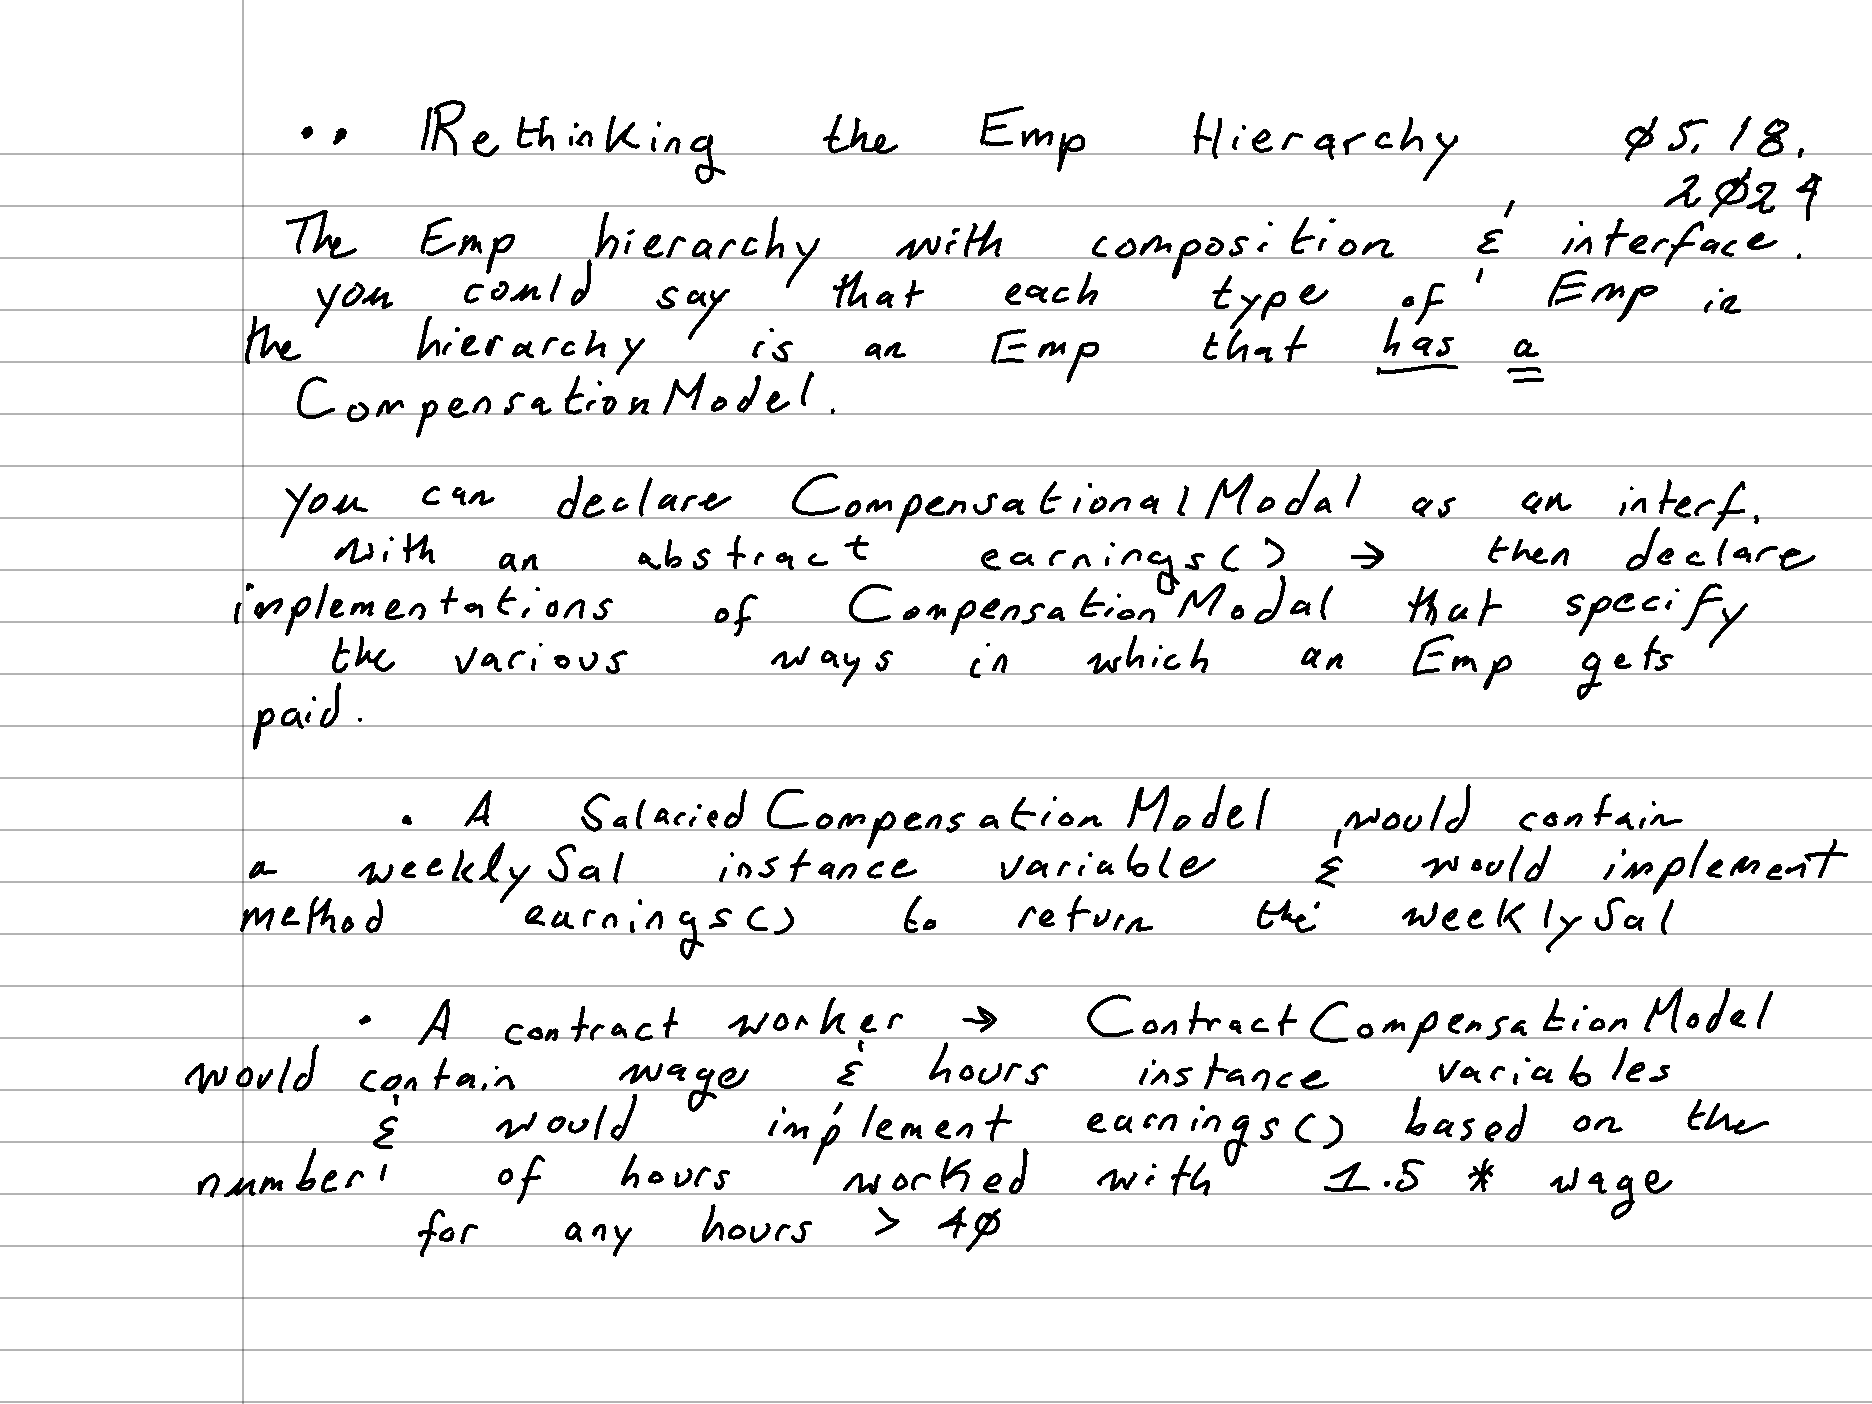 •• Rethinking the Emp Hierarchy Ø5.18.
2Ø24
The Emp hierarchy with composition & interface.
you could say that each type of Emp in
the hierarchy is an Emp that has a
CompensationModel.
you can declare CompensationalModal as an interf.
with an abstract earnings() → then declare
implementations of CompensationModal that specify
the various ways in which an Emp gets
paid.
• A SalariedCompensationModel would contain
a weeklySal instance variable & would implement
method earnings() to return the weeklySal
• A contract worker → ContractCompensationModel
would contain wage & hours instance variables
& would implement earnings() based on the
number of hours worked with 1.5 * wage
for any hours > 4Ø